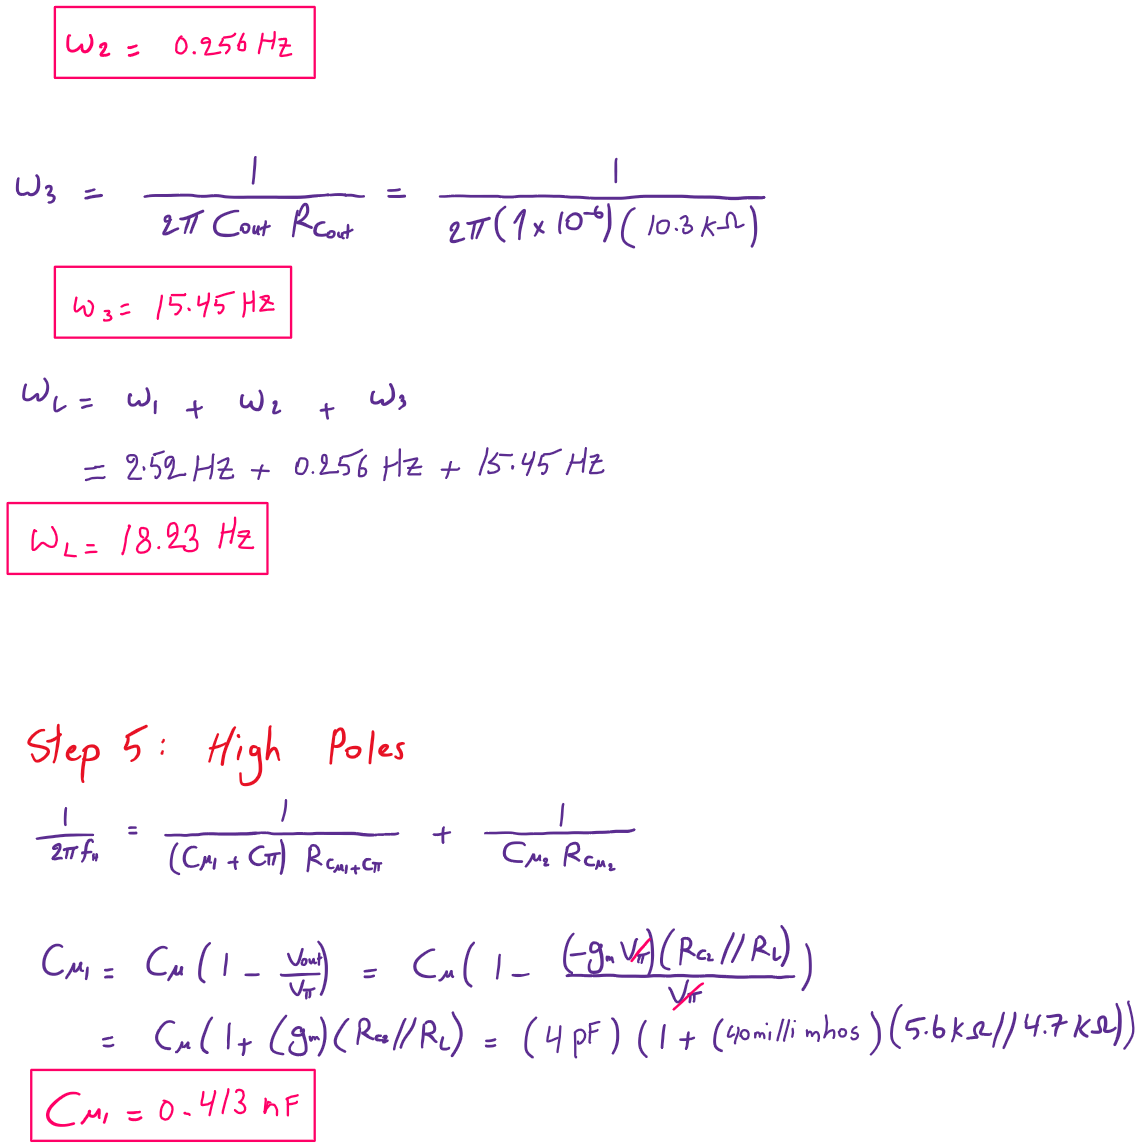 ω2 = 0.256 Hz
ω3 = 1 / (2π Cout RCout) = 1 / (2π(1 x 10^-6)(10.3 kΩ))
ω3 = 15.45 Hz
ωL = ω1 + ω2 + ω3
= 2.52 Hz + 0.256 Hz + 15.45 Hz
ωL = 18.23 Hz
Step 5: High Poles
1 / (2πfH) = 1 / ((Cμ1 + Cπ) RCμ1+Cπ) + 1 / (Cμ2 RCμ2)
Cμ1 = Cμ(1 - Vout/Vπ) = Cμ(1 - (-gm Vπ)(RC2//RL) / Vπ)
= Cμ(1 + (gm)(RC2//RL) = (4 pF)(1 + (40 milli mhos)(5.6 kΩ//4.7 kΩ))
Cμ1 = 0.413 nF